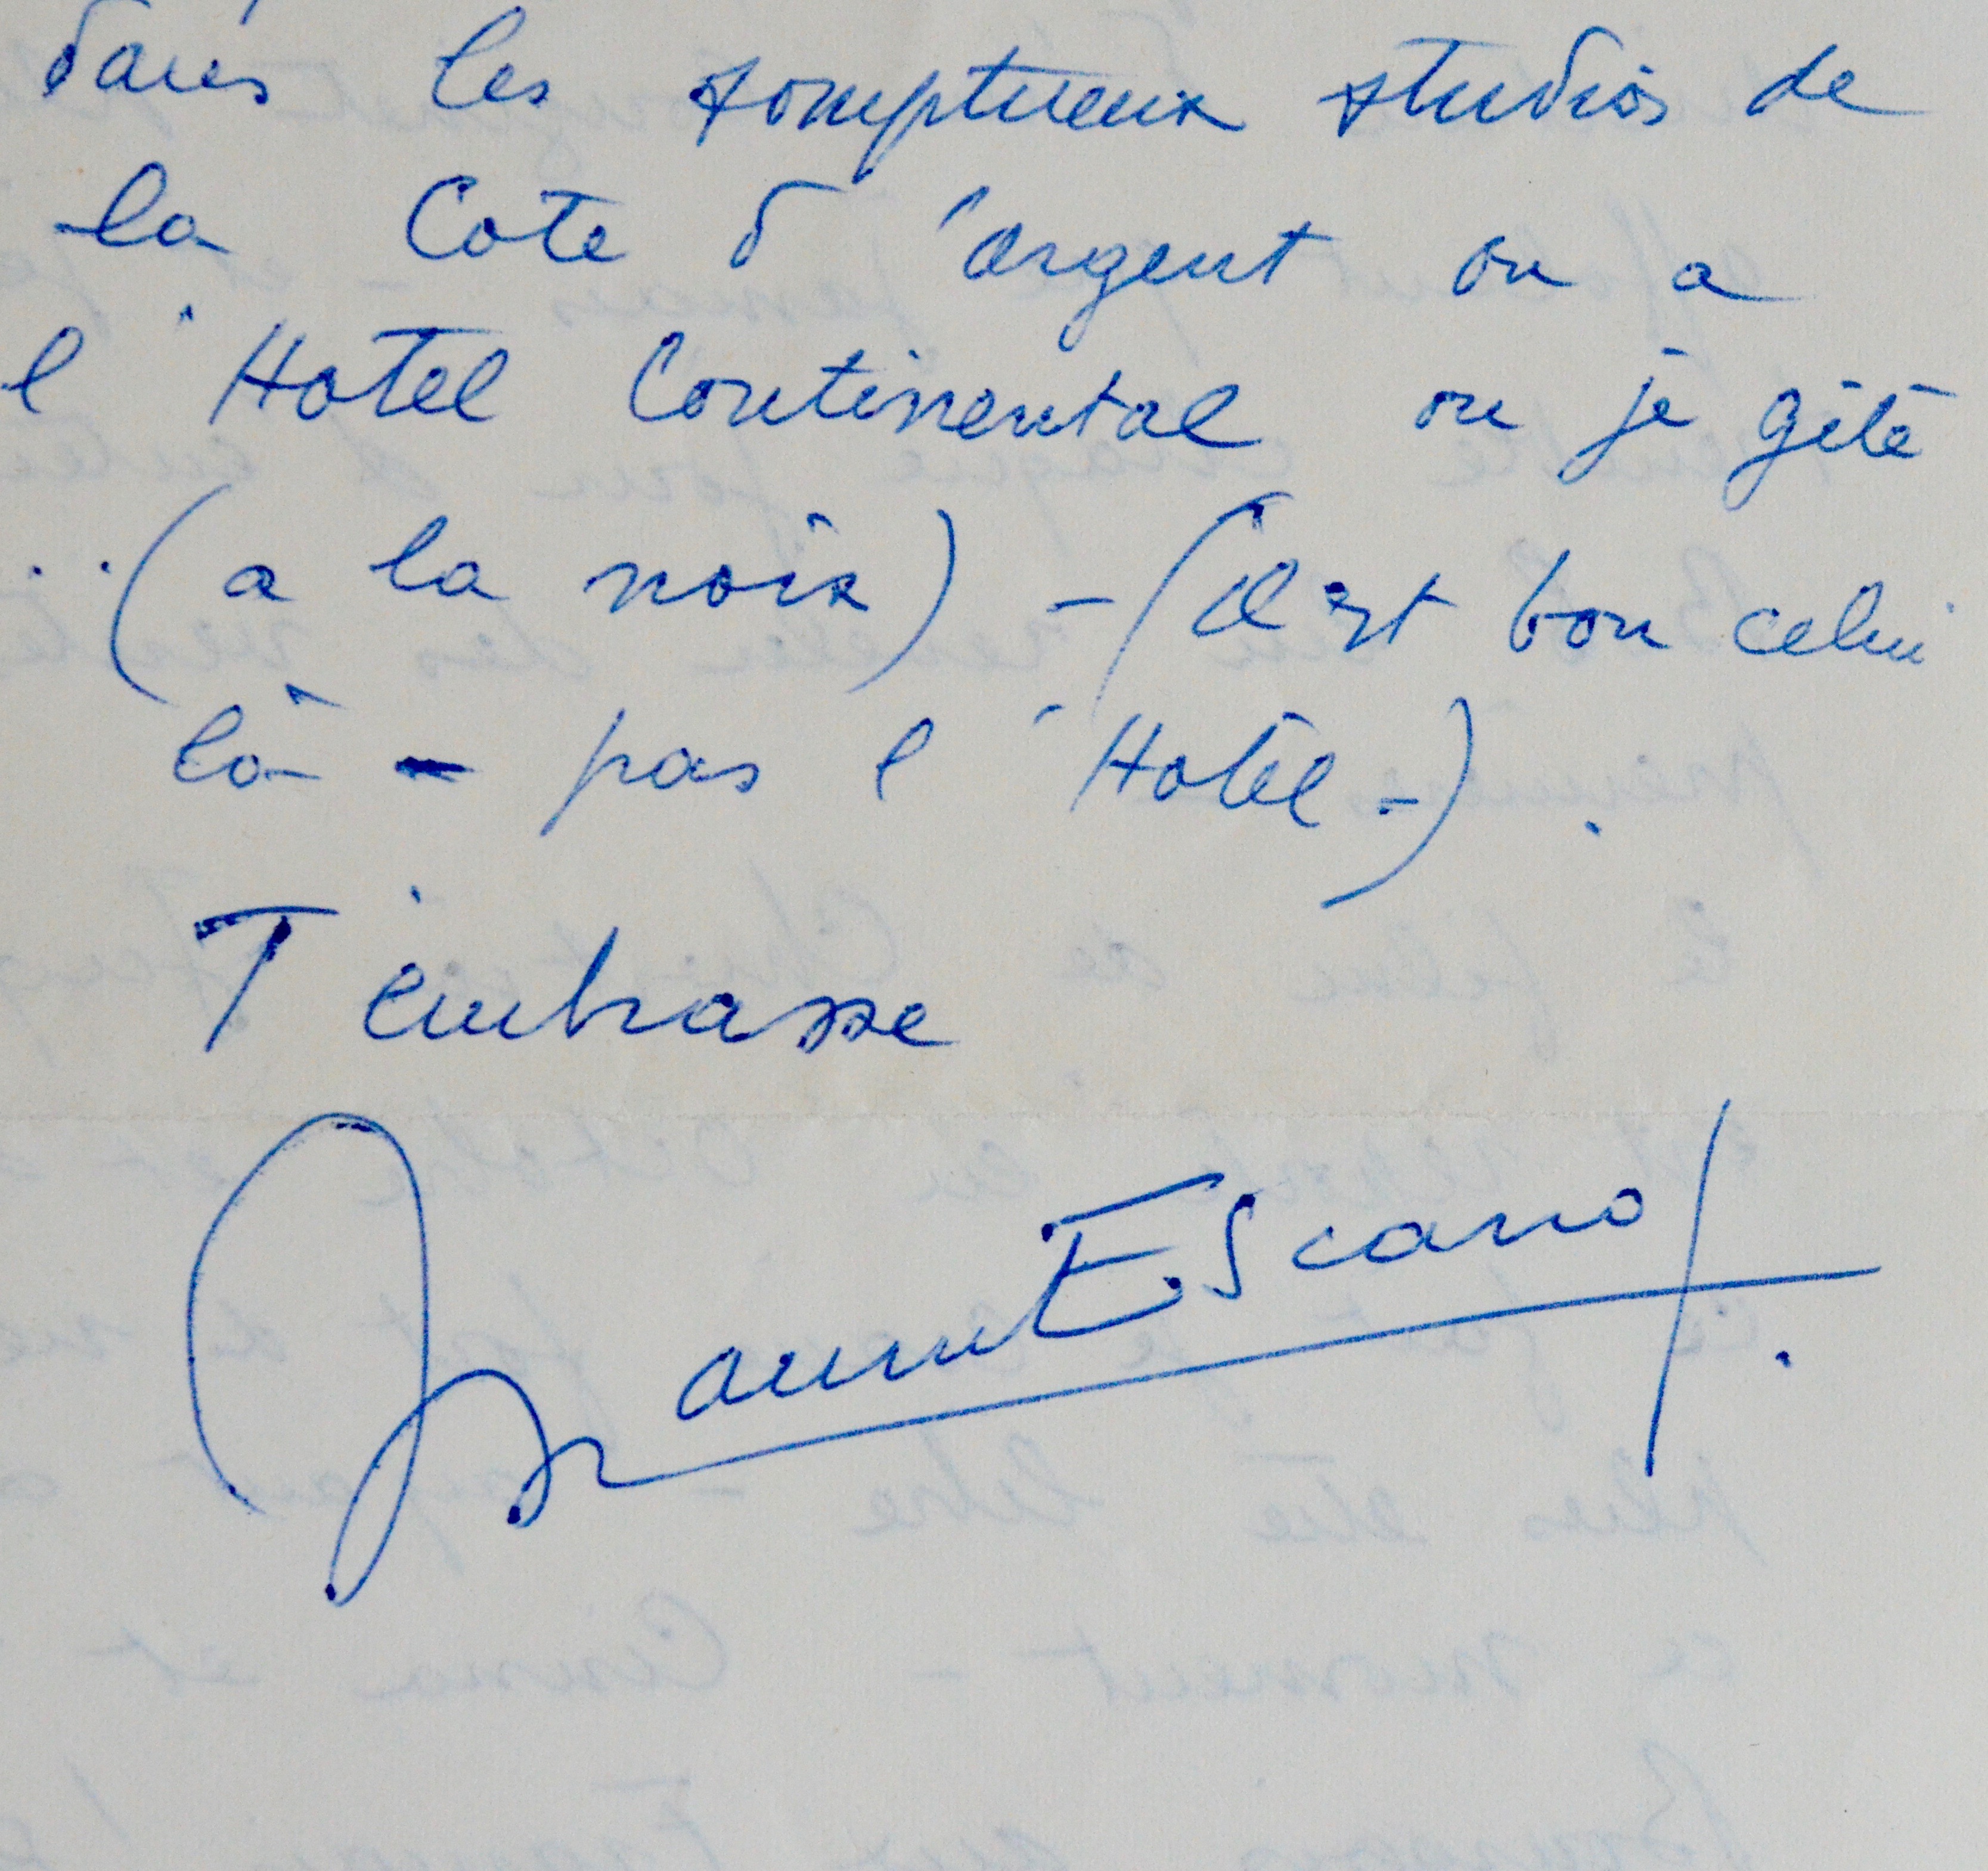 dans les somptueux studios de
la Cote d'argent ou a
l'Hotel Continental ou je gîte
..(a la noix) - (Il est bon celui
là - pas l'Hotel -).
T'embrasse
Escano